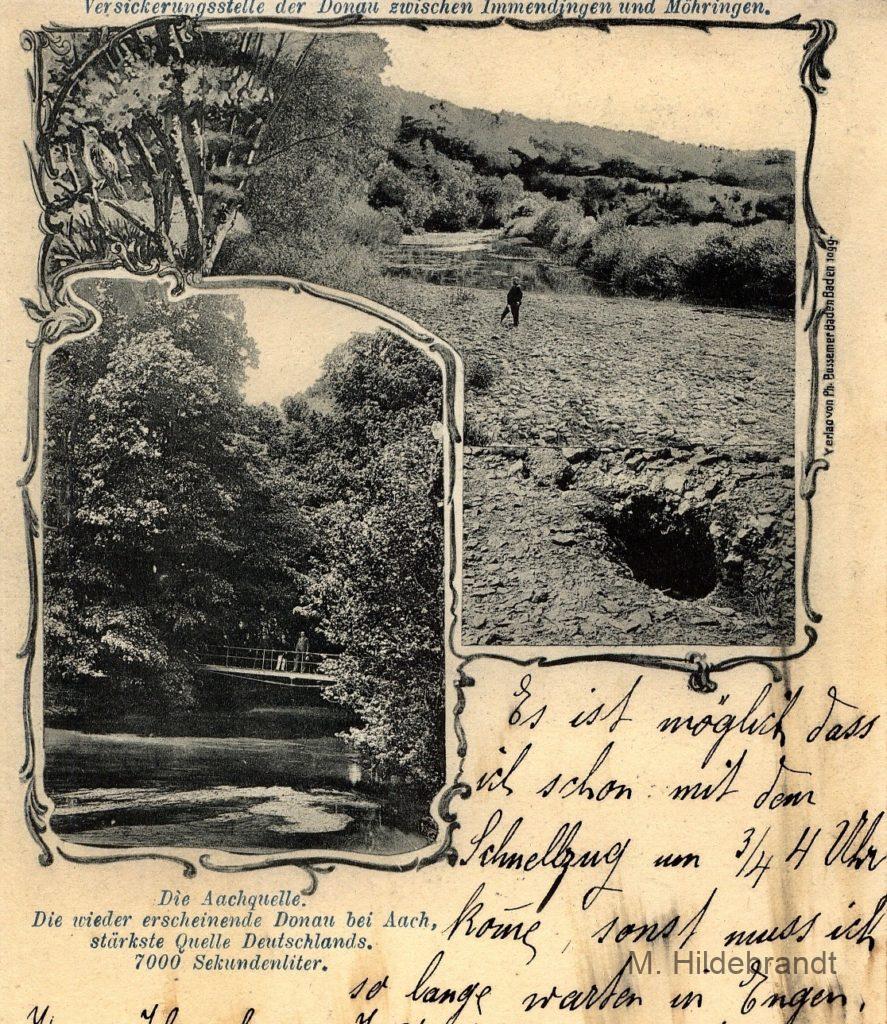 Versickerungsstelle der Donau zwischen Immendingen und Möhringen.
Verlag von Ph. Bussemer Baden Baden 1099.
Es ist möglich dass
ich schon mit dem
Schnellzug um 3/4 4 Uhr
kom̄e, sonst muss ich
so lange warten in Engen.
Die Aachquelle.
Die wieder erscheinende Donau bei Aach,
stärkste Quelle Deutschlands.
7000 Sekundenliter.
M. Hildebrandt